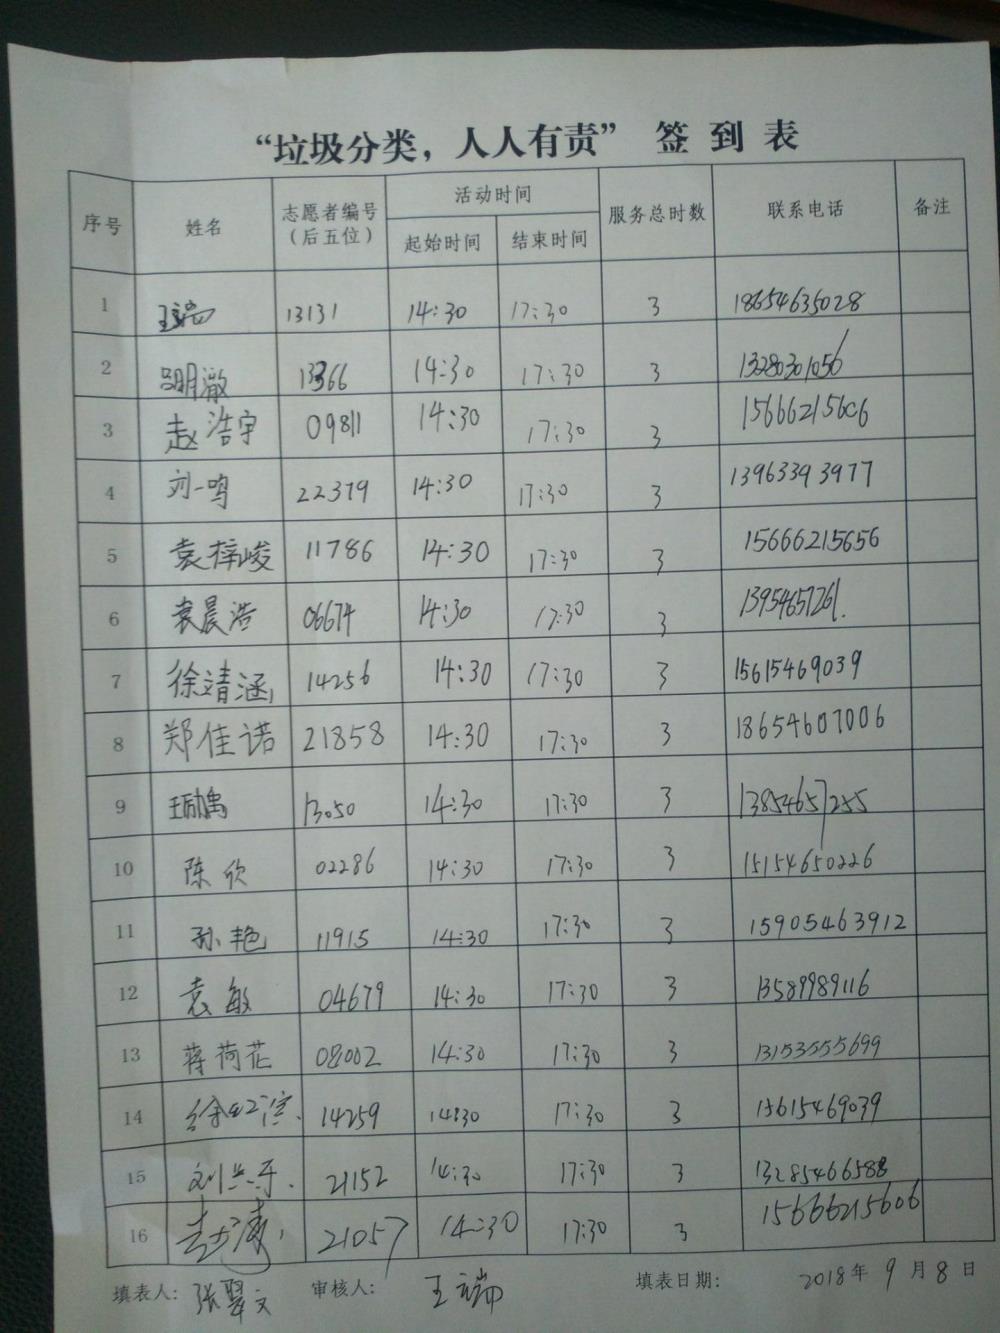 “垃圾分类，人人有责” 签到表
序号 姓名 志愿者编号（后五位） 活动时间 服务总时数 联系电话 备注
起始时间 结束时间
1 王瑞 13131 14:30 17:30 3 18654635028
2 明澈 13366 14:30 17:30 3 13280301056
3 赵浩宇 09811 14:30 17:30 3 15666215606
4 刘一鸣 22379 14:30 17:30 3 13963393977
5 袁梓峻 11786 14:30 17:30 3 15666215656
6 袁晨浩 06674 14:30 17:30 3 13954657261.
7 徐靖涵 14256 14:30 17:30 3 15615469039
8 郑佳诺 21858 14:30 17:30 3 18654607006
9 王励禹 13050 14:30 17:30 3 13854657255
10 陈欣 02286 14:30 17:30 3 15154650226
11 孙艳 11915 14:30 17:30 3 15905463912
12 袁敏 04679 14:30 17:30 3 13589989116
13 蒋荷花 08002 14:30 17:30 3 13153555699
14 徐 14259 14:30 17:30 3 15615469039
15 刘兴乐 21152 14:30 17:30 3 13285466588
16 21057 14:30 17:30 3 15666215606
填表人: 张翠文 审核人: 王瑞 填表日期: 2018年9月8日